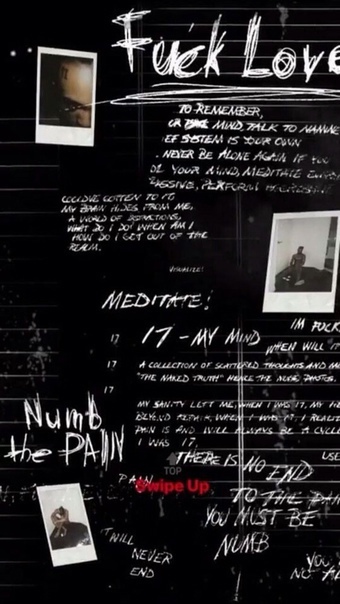 Fuck Love
TO REMEMBER,
MIND, TALK TO
EF SYSTEM IS YOUR OWN
NEVER BE ALONE AGAIN IF YOU
YOUR MIND, MEDITATE
PERFORM
GOTTEN TO IT
MY BRAIN HIDES FROM ME,
A WORLD OF DISTRACTIONS,
WHAT DO I DO? WHEN AM I
HOW DO I GET OUT OF THE
REALM.
VISUALIZE!
MEDITATE!
IM FUCK
17 17 - MY MIND
WHEN WILL IT
17 A COLLECTION OF SCATTERED THOUGHTS AND
"THE NAKED TRUTH" HENCE THE NUDE PHOTOS.
17 MY SANITY LEFT ME, WHEN I WAS 17, MY
BEYOND REPAIR, WHEN I WAS 17 I REALI
PAIN IS AND WILL ALWAYS BE A CYCLE
I WAS 17,
Numb
the PAIN
THERE IS NO END
USE
TOP
PAIN
Swipe Up
TO THE PAIN
YOU MUST BE
NUMB
WILL
NEVER
END
YOU
NO